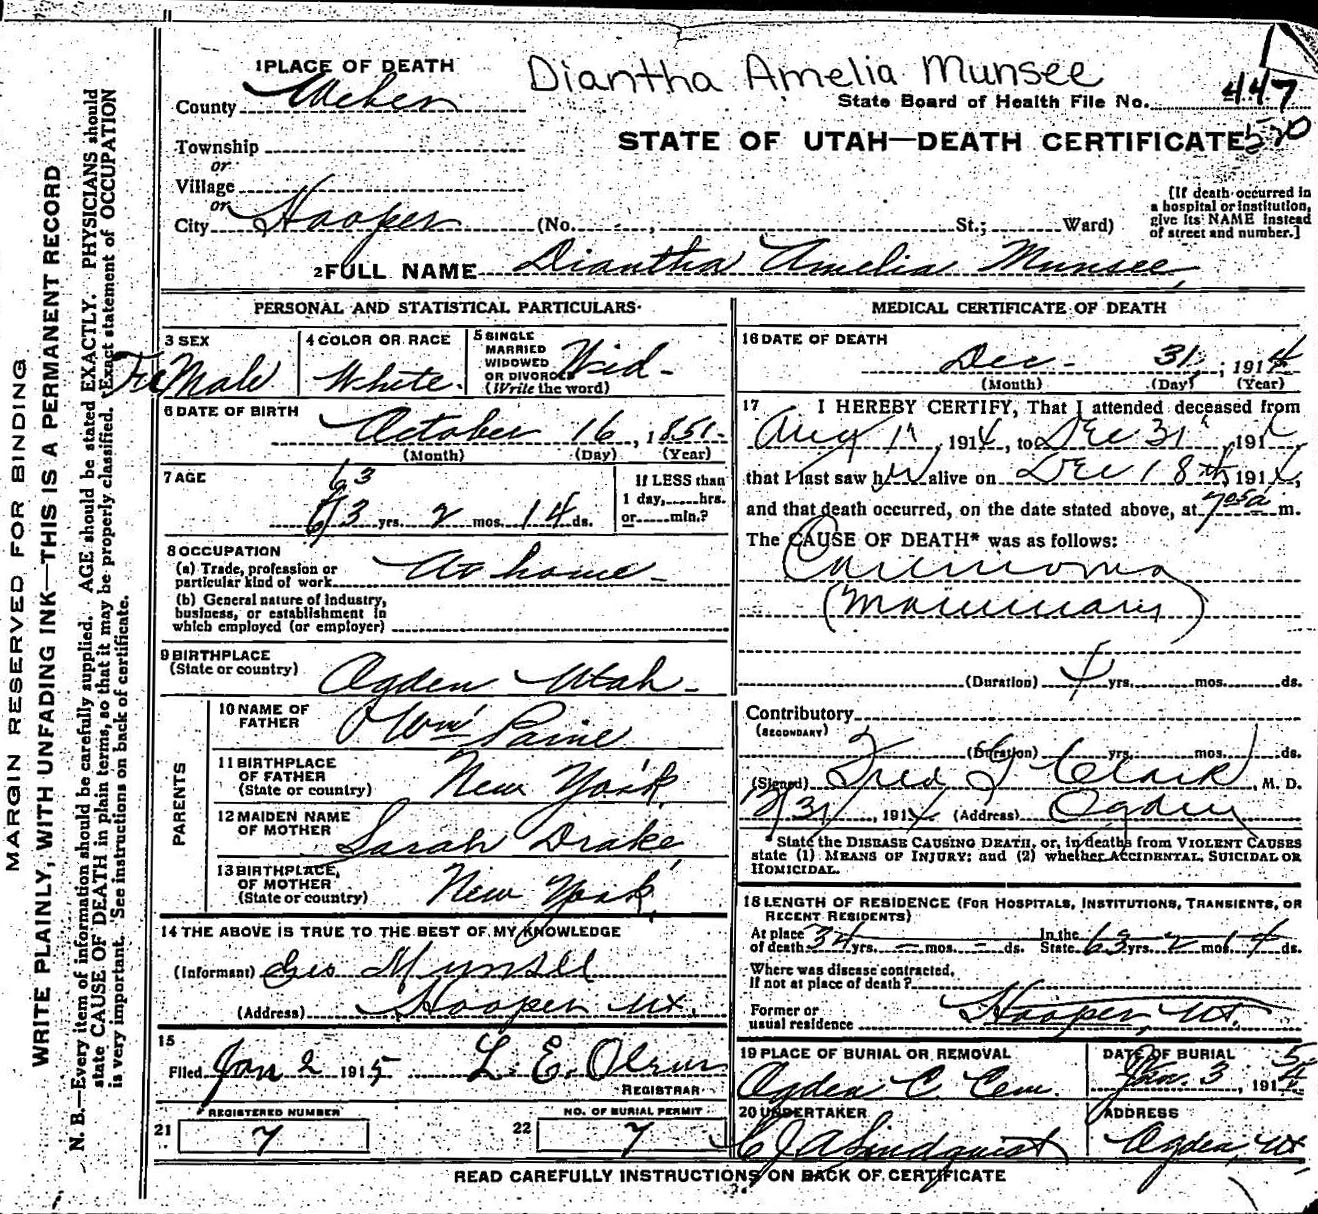 1 PLACE OF DEATH
Diantha Amelia Munsee
County Weber
State Board of Health File No. 447
STATE OF UTAH—DEATH CERTIFICATE 570
Township
or
Village
or
City Hooper (No. St.; Ward)
[If death occurred in
a hospital or institution,
give its NAME instead
of street and number.]
2 FULL NAME Diantha Amelia Munsee
PERSONAL AND STATISTICAL PARTICULARS
3 SEX
Fe Male
4 COLOR OR RACE
White
5 SINGLE
MARRIED
WIDOWED
OR DIVORCED
(Write the word)
Wid
6 DATE OF BIRTH
October 16, 1851
(Month) (Day) (Year)
7 AGE
63
63 yrs. 2 mos. 14 ds.
If LESS than
1 day, hrs.
or min.?
8 OCCUPATION
(a) Trade, profession or
particular kind of work At home
(b) General nature of industry,
business, or establishment in
which employed (or employer)
9 BIRTHPLACE
(State or country) Ogden Utah
PARENTS
10 NAME OF
FATHER Wm Paine
11 BIRTHPLACE
OF FATHER
(State or country) New York
12 MAIDEN NAME
OF MOTHER Sarah Drake
13 BIRTHPLACE
OF MOTHER
(State or country) New York
14 THE ABOVE IS TRUE TO THE BEST OF MY KNOWLEDGE
(Informant) Geo Munsee
(Address) Hooper Ut.
15
Filed Jan 2 1915 L. E. Olsun
REGISTRAR
REGISTERED NUMBER
21 7
NO. OF BURIAL PERMIT
22 7
MEDICAL CERTIFICATE OF DEATH
16 DATE OF DEATH
Dec. 31, 1914
(Month) (Day) (Year)
17 I HEREBY CERTIFY, That I attended deceased from
Aug 1", 1914, to Dec 31", 191
that I last saw her alive on Dec 18th, 191
and that death occurred, on the date stated above, at 705a m.
The CAUSE OF DEATH* was as follows:
Carcinoma
(Mammary)
(Duration) 4 yrs. mos. ds.
Contributory
(SECONDARY)
(Duration) yrs. mos. ds.
(Signed) Fred Clark, M. D.
12/31, 1914 (Address) Ogden
* State the DISEASE CAUSING DEATH, or, in deaths from VIOLENT CAUSES
state (1) MEANS OF INJURY; and (2) whether ACCIDENTAL, SUICIDAL OR
HOMICIDAL.
18 LENGTH OF RESIDENCE (FOR HOSPITALS, INSTITUTIONS, TRANSIENTS, OR
RECENT RESIDENTS)
At place In the
of death 34 yrs. – mos. – ds. State 63 yrs. 2 mos. 14 ds.
Where was disease contracted,
If not at place of death?
Former or
usual residence Hooper, Ut.
19 PLACE OF BURIAL OR REMOVAL
Ogden C. Cem.
DATE OF BURIAL
Jan. 3, 1915
20 UNDERTAKER
C J A Lindquist
ADDRESS
Ogden, Ut
READ CAREFULLY INSTRUCTIONS ON BACK OF CERTIFICATE
MARGIN RESERVED FOR BINDING
WRITE PLAINLY, WITH UNFADING INK—THIS IS A PERMANENT RECORD
N. B.—Every item of information should be carefully supplied. AGE should be stated EXACTLY. PHYSICIANS should
state CAUSE OF DEATH in plain terms, so that it may be properly classified. Exact statement of OCCUPATION
is very important. See instructions on back of certificate.